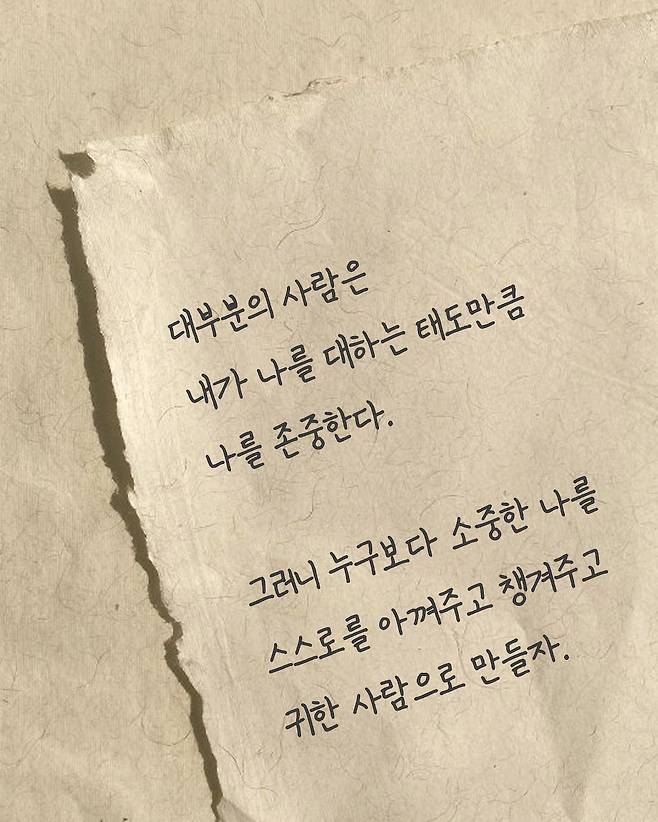 대부분의 사람은
내가 나를 대하는 태도만큼
나를 존중한다.
그러니 누구보다 소중한 나를
스스로를 아껴주고 챙겨주고
귀한 사람으로 만들자.